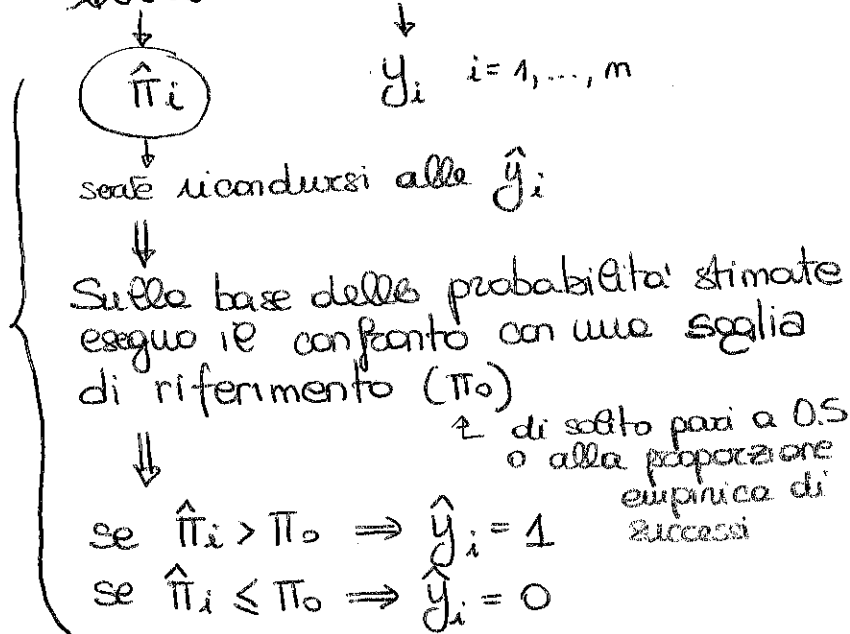 π̂i
yi i = 1, ..., n
ricondursi alle ŷi
Sulla base delle probabilita' stimate
eseguo il confronto con una soglia
di riferimento (π0)
di solito pari a 0.5
o alla proporzione
empirica di
successi
se π̂i > π0 ⇒ ŷi = 1
se π̂i ≤ π0 ⇒ ŷi = 0